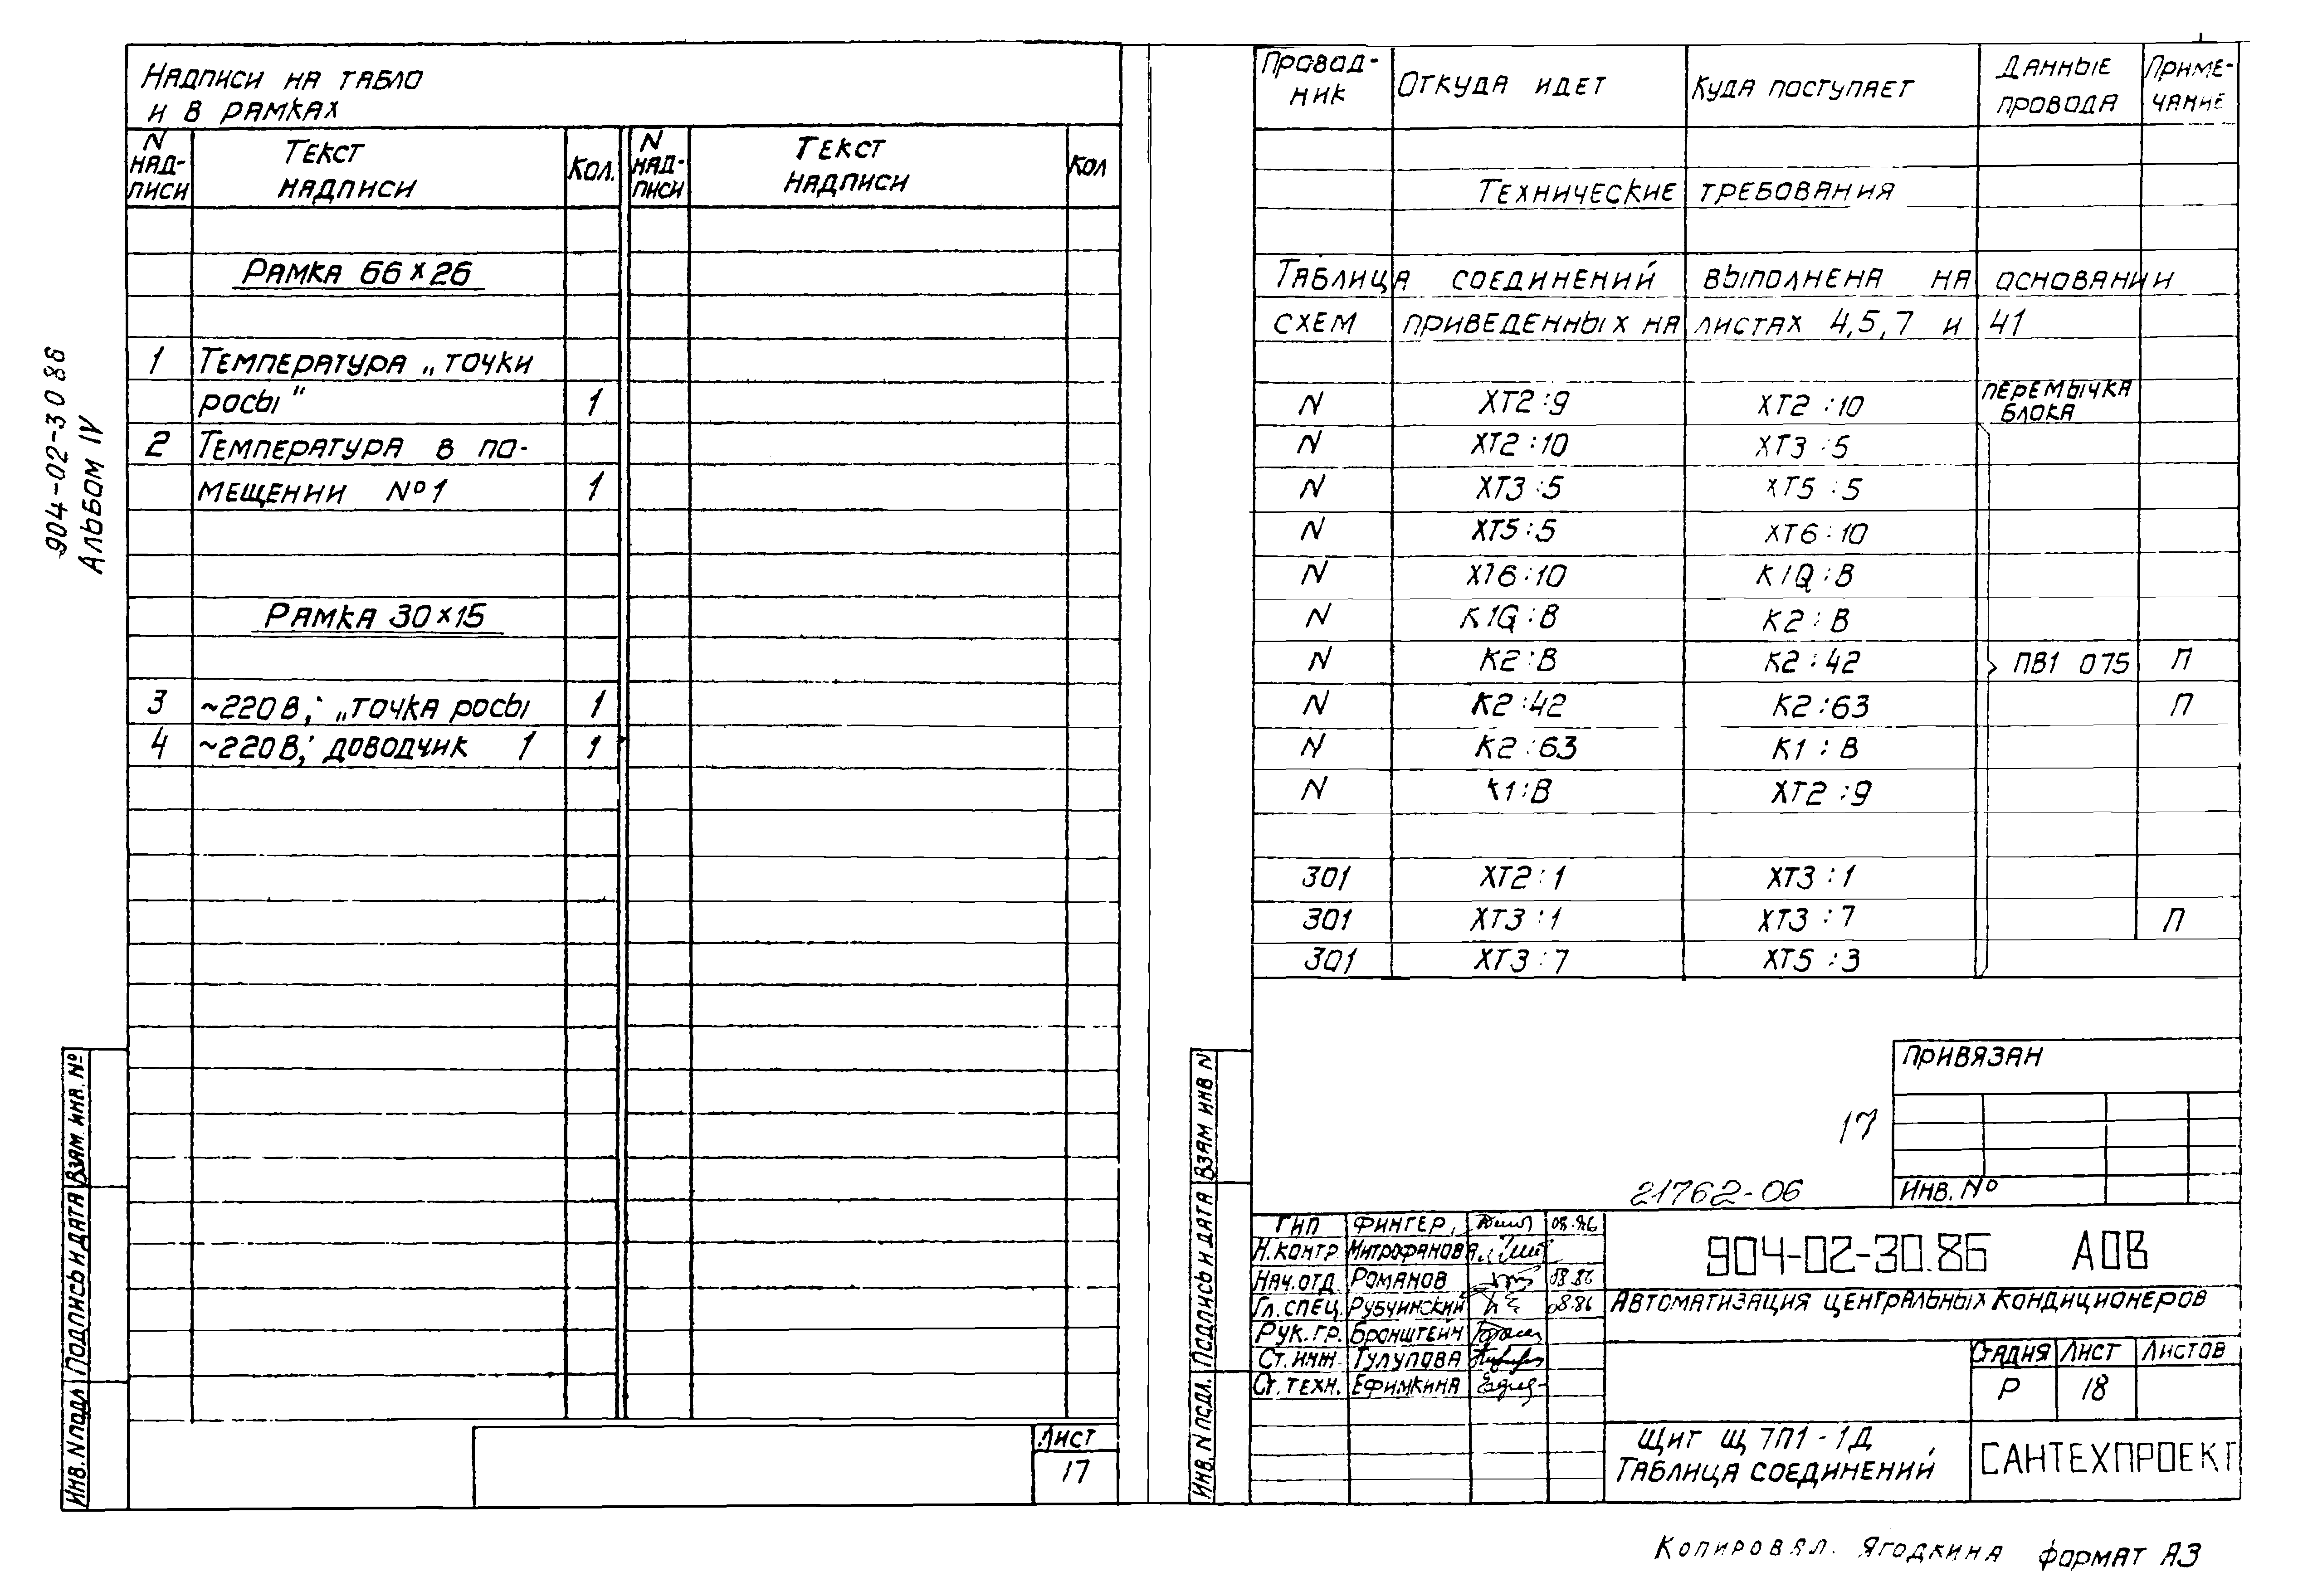 904-02-30 88
Альбом IV
Надписи на табло
и в рамках
N надписи Текст надписи Кол. N надписи Текст надписи Кол
Рамка 66×26
1 Температура „точки
росы" 1
2 Температура в по-
мещении №1 1
Рамка 30×15
3 ~220В; „точка росы 1
4 ~220В; доводчик 1 1
Взам. инв. №
Подпись и дата
Инв. N подл
Лист
17
Провод-ник Откуда идет Куда поступает Данные провода Приме-чание
Технические требования
Таблица соединений выполнена на основании
схем приведенных на листах 4,5,7 и 41
N ХТ2:9 ХТ2:10 перемычка блока
N ХТ2:10 ХТ3:5
N ХТ3:5 ХТ5:5
N ХТ5:5 ХТ6:10
N ХТ6:10 К1Q:В
N К1Q:В К2:В
N К2:В К2:42 ПВ1 075 П
N К2:42 К2:63 П
N К2:63 К1:В
N К1:В ХТ2:9
301 ХТ2:1 ХТ3:1
301 ХТ3:1 ХТ3:7 П
301 ХТ3:7 ХТ5:3
Привязан
17
21762-06
Инв. №
Взам инв N
Подпись и дата
Инв. N подл.
ГИП Фингер, 08.86
Н.контр Митрофанова
Нач.отд Романов 08.86
Гл.спец. Рубчинский 08.86
Рук.гр. Бронштейн
Ст.инж. Тулупова
Ст.техн. Ефимкина
904-02-30.86 АОВ
Автоматизация центральных кондиционеров
Стадия Лист Листов
Р 18
Щит Щ7П1-1Д
Таблица соединений
САНТЕХПРОЕКТ
Копировал. Ягодкина формат А3